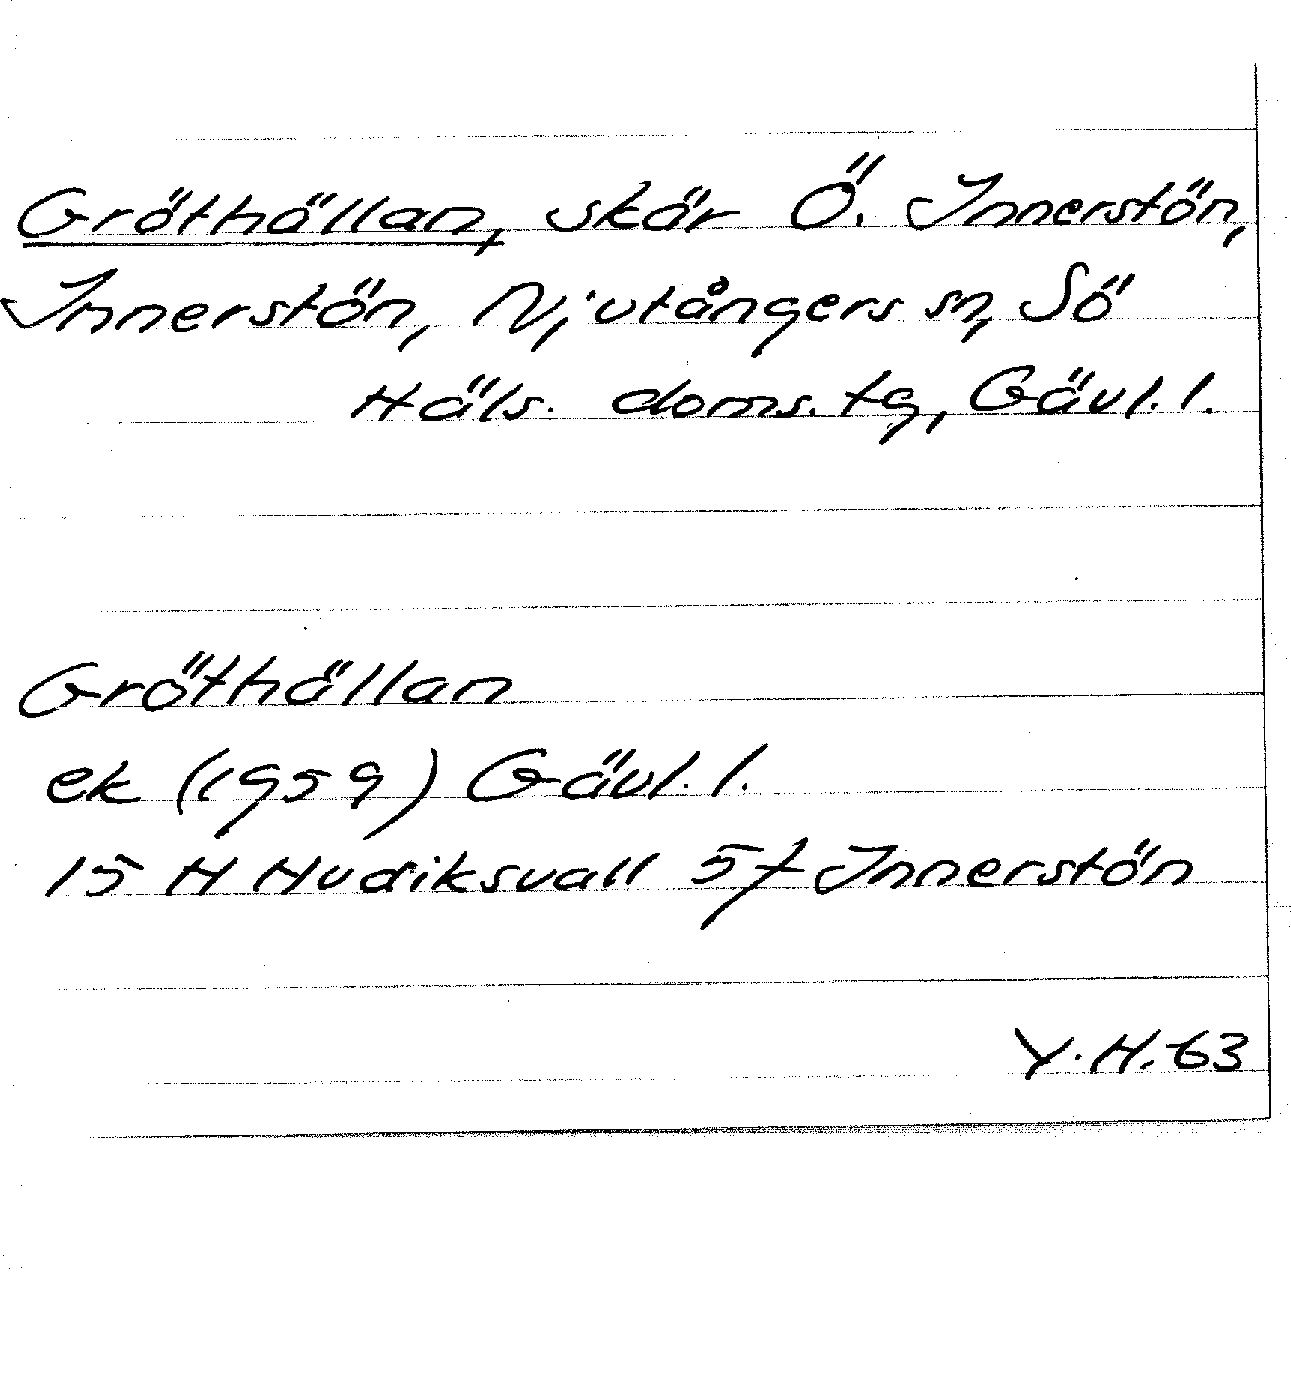 Gröthällan, skär Ö. Innerstön,
Innerstön, Njutångers sn, Sö
Häls. doms. tg, Gävl. l.
Gröthällan
ek (1959) Gävl. l.
15 H Hudiksvall 5f Innerstön
Y. H. 63